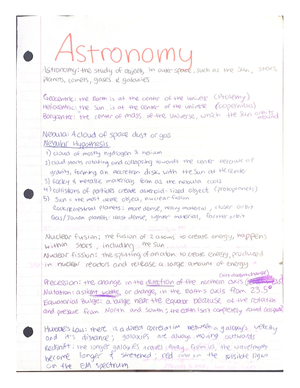 Astronomy
Astronomy: the study of objects in outer space, such as the sun, stars,
planets, comets, gases & galaxies
Geocentric: the Earth is at the center of the universe (Ptolemy)
Heliocentric: the Sun is at the center of the universe (Copernicus)
Barycenter: the center of mass of the universe, which the Sun orbits
around
Nebula: a cloud of space dust or gas
Nebular Hypothesis
1) Cloud of mostly hydrogen & helium
2) Cloud starts rotating and collapsing towards the center because of
gravity, forming an accretion disk with the Sun at the centre
3) Rocky & metallic materials form as the nebula cools
4) Collisions of particles create asteroid-sized object
5) Sun = the most dense object, nuclear fusion
Rocky/terrestrial planets: more dense, heavy material, closer orbit
Gas/Jovian planets: less dense, lighter material, farther orbit
Nuclear fusion: the fusion of 2 atoms to create energy, happens
within stars, including the Sun
Nuclear fission: the splitting of an atom to create energy, produced
in nuclear reactors and release a large amount of energy
Precession: the change in the direction of the Northern axis
Nutation: a slight change in the Earth's axis from 23.5°
Equatorial bulge: a bulge near the Equator because of the rotation
and pressure from North and South; the Earth isn't completely round
Hubble's Law: there is a direct correlation between a galaxy's velocity
and it's distance; galaxies are always moving outwards
Redshift: the longer galaxies travel away from us, the wavelengths
become longer & stretched; red on the visible light
on the EM spectrum